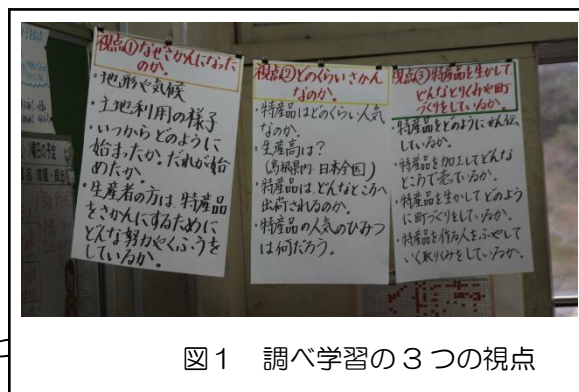 視点①なぜさかんになった
のか。
・地形や気候
・土地利用の様子
・いつからどのように
始まったか。だれが始
めたか。
・生産者の方は、特産品
をさかんにするために
どんな努力やくふうを
しているか。
視点②どのくらいさかん
なのか。
・特産品はどのくらい人気
なのか。
・生産高は?
(島根県内・日本全国)
・特産品は、どんなところへ
出荷されるのか。
・特産品の人気のひみつ
は何だろう。
視点③特産品を生かして、
どんなとりくみや町
づくりをしているか。
・特産品をどのようにせんでん
しているか。
・特産品を加工してどんな
ところで売っているか。
・特産品を生かして、どのよう
に町づくりをしているか。
・特産品を作る人をふやして
いく取りくみをしているか。
曜日の予定
図1 調べ学習の3つの視点